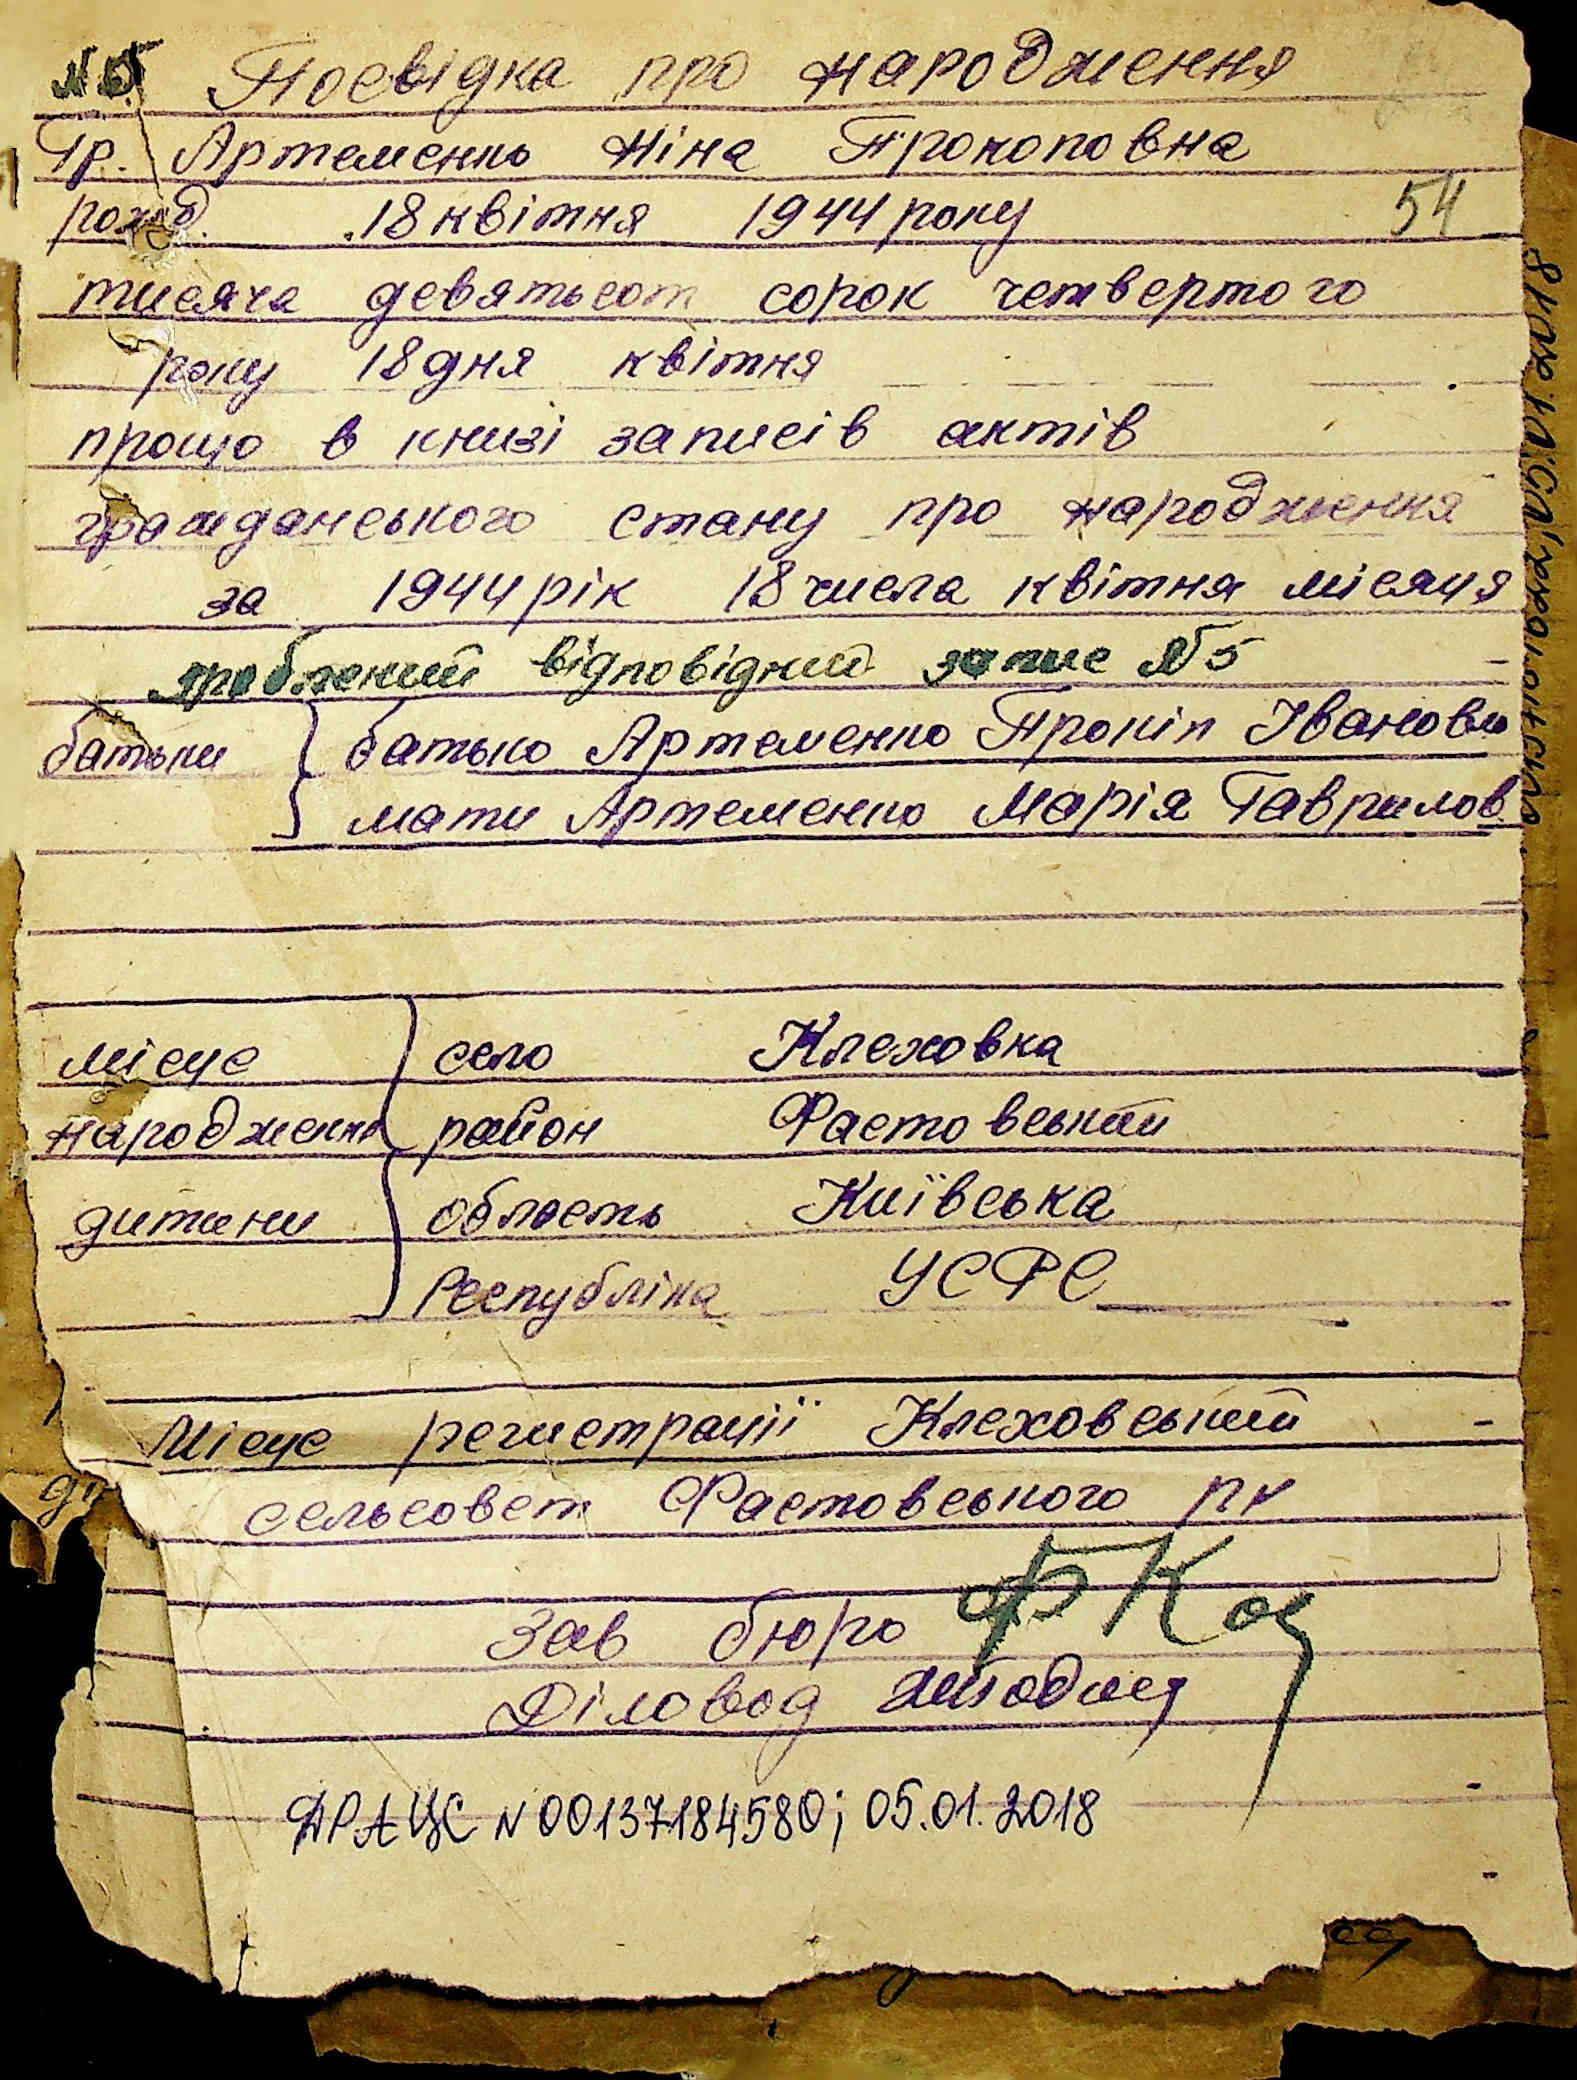 № 5 Посвідка про народження
Гр. Артеменко Ніна Прокоповна
рожд. 18 квітня 1944 року
54
тисяча девятьсот сорок четвертого
року 18 дня квітня
прощо в книзі записів актів
гражданського стану про народження
за 1944 рік 18 числа квітня місяця
зроблений відповідний запис № 5
батьки батько Артеменко Прокіп Іванович
мати Артеменко Марія Гаврилов.
місце село Клеховка
народження район Фастовський
дитини область Київська
Республіка УСРС
Місце регистрації Клеховський
сельсовет Фастовського
Зав бюро
Діловод
ДРАЦС N 00137184580; 05.01.2018